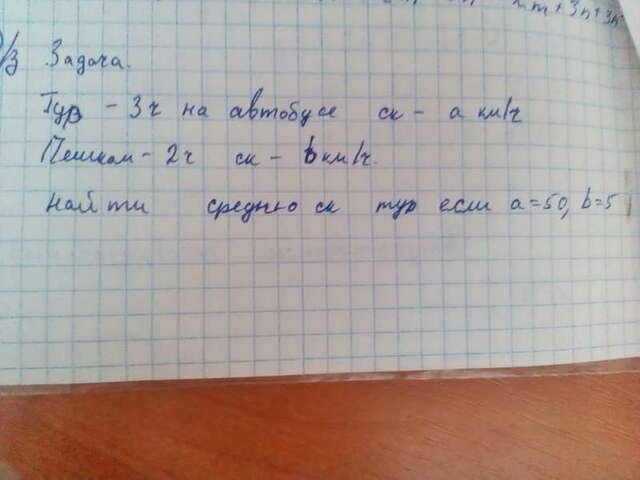 mm + 3n + 3n
Д/з Задача.
Тур - 3ч на автобусе ск - a км/ч
Пешком - 2ч ск - b км/ч.
Найти среднюю ск тур если a=50, b=5